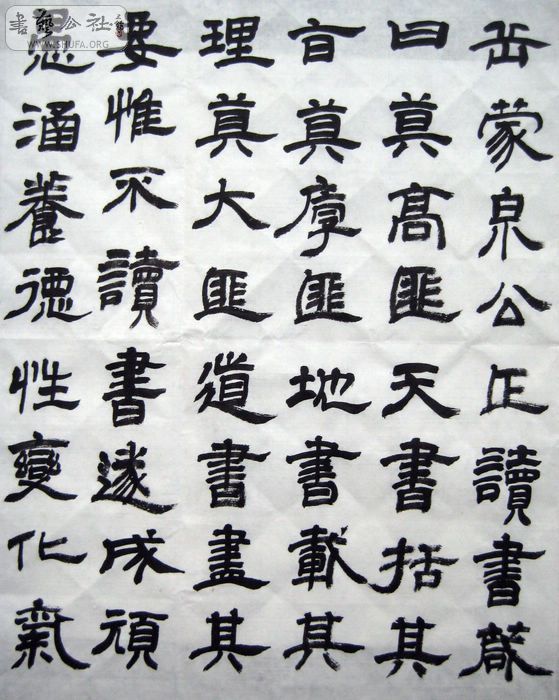 岳蒙泉公正讀書箴
曰莫高匪天書括其
旨莫厚匪地書載其
理莫大匪道書盡其
要惟不讀書遂成頑
涵養德性變化氣
書藝公社
WWW.SHUFA.ORG